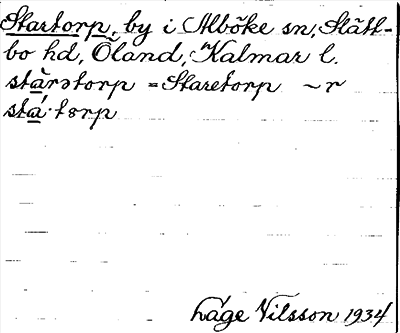 Startorp, by i Alböke sn, Slätt-
bo hd, Öland, Kalmar l.
stàrətorp = Staretorp ~ r
stá·tørp
Låge Nilsson 1934